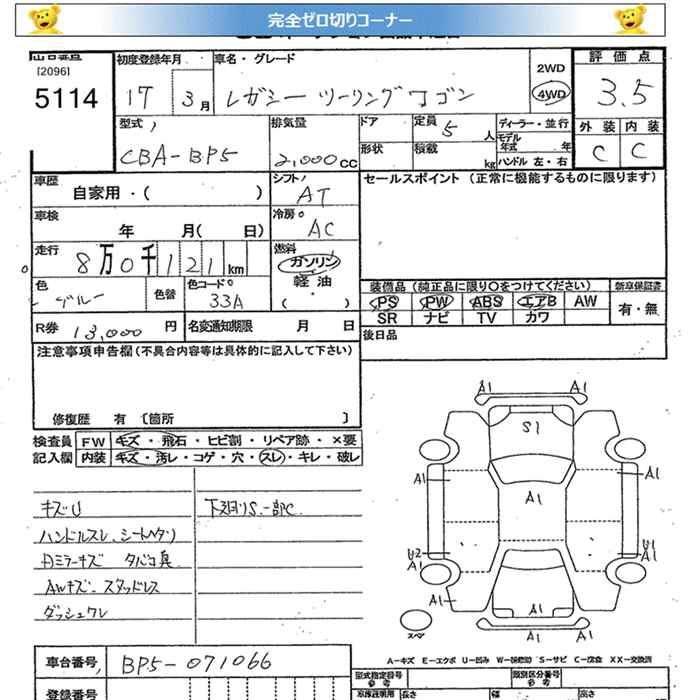 完全ゼロ切りコーナー
[2096]
5114
初度登録年月
17 3月
車名・グレード
レガシー ツーリングワゴン
2WD
4WD
評価点
3.5
外装 内装
C C
型式
CBA-BP5
排気量
2,000cc
ドア
形状
定員 5人
積載 kg
ディーラー・並行
モデル年式 年
ハンドル 左・右
車歴
自家用・( )
シフト
AT
セールスポイント (正常に機能するものに限ります)
車検
年 月( 日)
冷房
AC
走行
8万0千121km
燃料
ガソリン
軽油
( ・ )
色
ブルー
色替
色コード
33A
装備品 (純正品に限り○をつけてください)
新車保証書
PS PW ABS エアB AW
有・無
SR ナビ TV カワ
R券 13,000円
名変通知期限 月 日
後日品
注意事項申告欄(不具合内容等は具体的に記入して下さい)
修復歴 有 〔箇所 〕
検査員記入欄
FW キズ・飛石・ヒビ割・リペア跡・×要
内装 キズ・汚レ・コゲ・穴・スレ・キレ・破レ
キズU
下廻りS.一部C.
ハンドルスレ、シートヘタリ
タバコ臭
AWキズ、スタッドレス
A1 A1
S1
A1
A1 A1
U2
A1
U1
A1
A1 A1
スペア
A-キズ E-エクボ U-凹み W-補修跡 S-サビ C-腐食 XX-交換済
車台番号
BP5-071066
型式指定番号
参考
類別区分番号
参考
登録番号
長さ 幅 高さ